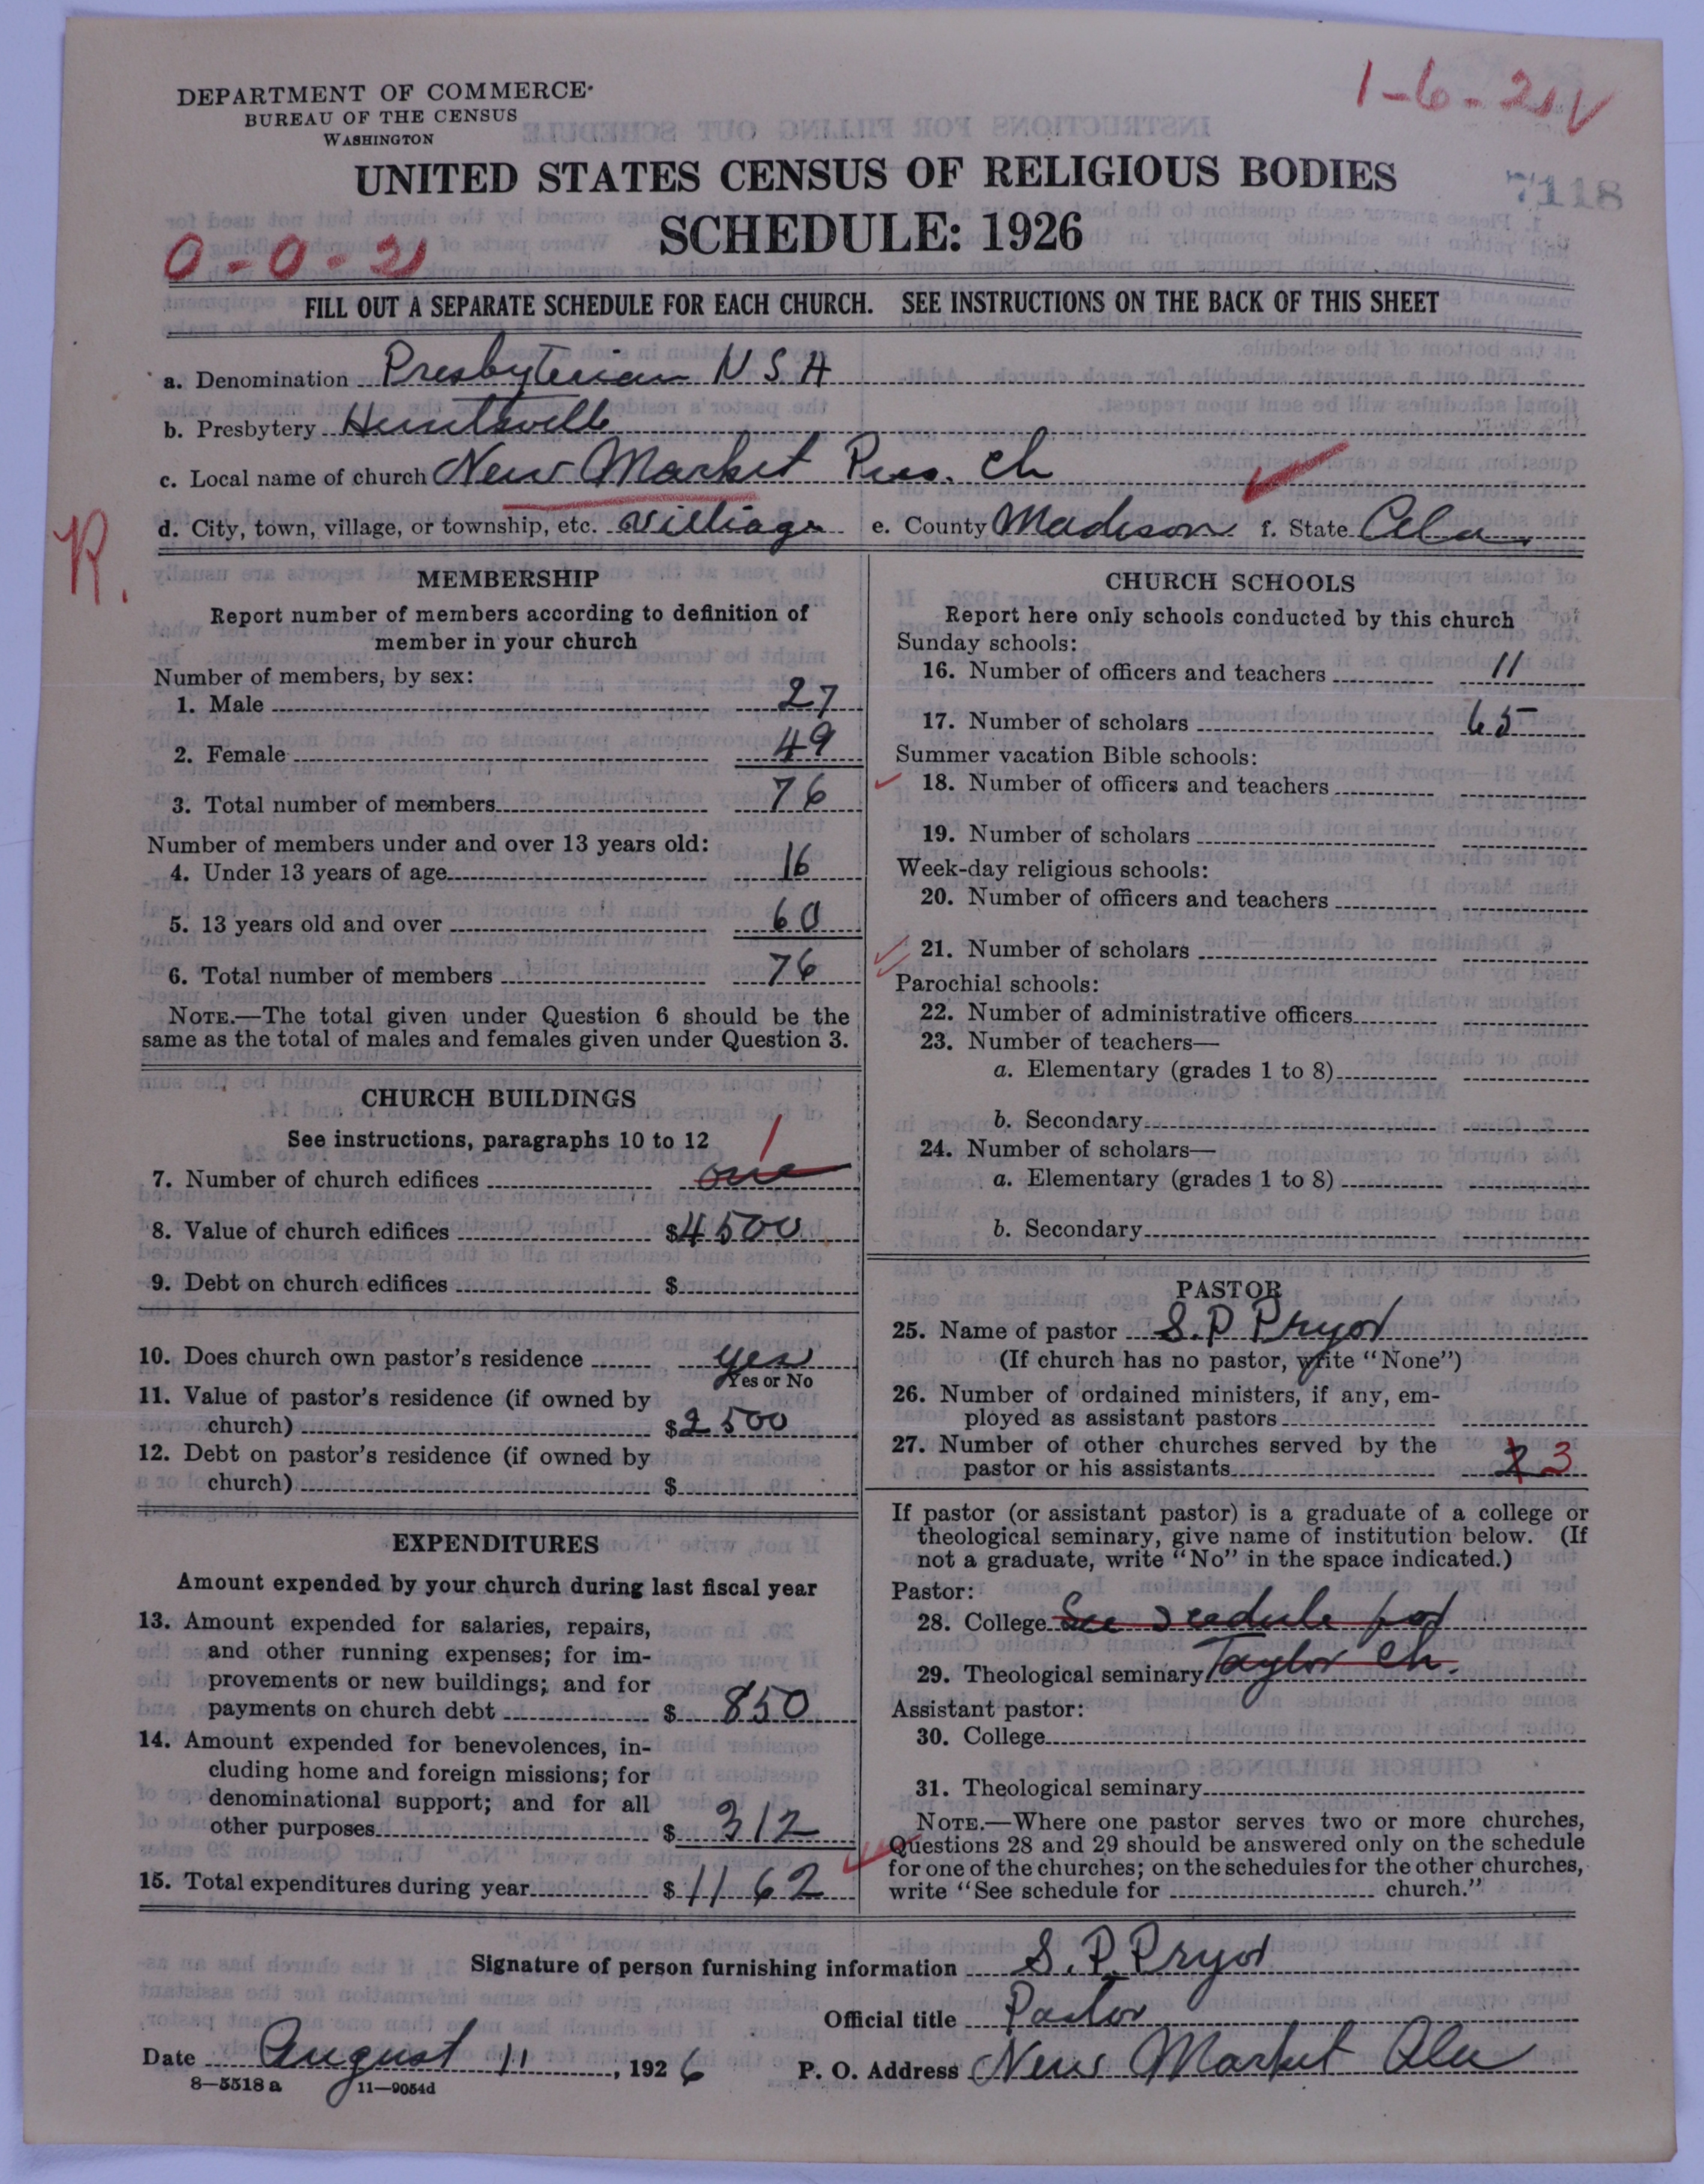 DEPARTMENT OF COMMERCE
BUREAU OF THE CENSUS
WASHINGTON
1-6-21 V
UNITED STATES CENSUS OF RELIGIOUS BODIES
7118
SCHEDULE: 1926
0-0-21
FILL OUT A SEPARATE SCHEDULE FOR EACH CHURCH. SEE INSTRUCTIONS ON THE BACK OF THIS SHEET
a. Denomination Presbyterian U S A
b. Presbytery Huntsville
c. Local name of church New Market Pres. Ch
d. City, town, village, or township, etc. Villiage e. County Madison f. State Ala.
R.
MEMBERSHIP
Report number of members according to definition of
member in your church
Number of members, by sex:
1. Male 27
2. Female 49
3. Total number of members 76
Number of members under and over 13 years old:
4. Under 13 years of age 16
5. 13 years old and over 60
6. Total number of members 76
NOTE.—The total given under Question 6 should be the
same as the total of males and females given under Question 3.
CHURCH BUILDINGS
See instructions, paragraphs 10 to 12
7. Number of church edifices one 1
8. Value of church edifices $4500
9. Debt on church edifices $
10. Does church own pastor's residence yes
Yes or No
11. Value of pastor's residence (if owned by
church) $2500
12. Debt on pastor's residence (if owned by
church) $
EXPENDITURES
Amount expended by your church during last fiscal year
13. Amount expended for salaries, repairs,
and other running expenses; for im-
provements or new buildings; and for
payments on church debt $ 850
14. Amount expended for benevolences, in-
cluding home and foreign missions; for
denominational support; and for all
other purposes $ 312
15. Total expenditures during year $ 1162
CHURCH SCHOOLS
Report here only schools conducted by this church
Sunday schools:
16. Number of officers and teachers 11
17. Number of scholars 65
Summer vacation Bible schools:
18. Number of officers and teachers
19. Number of scholars
Week-day religious schools:
20. Number of officers and teachers
21. Number of scholars
Parochial schools:
22. Number of administrative officers
23. Number of teachers—
a. Elementary (grades 1 to 8)
b. Secondary
24. Number of scholars—
a. Elementary (grades 1 to 8)
b. Secondary
PASTOR
25. Name of pastor S. P Pryor
(If church has no pastor, write "None")
26. Number of ordained ministers, if any, em-
ployed as assistant pastors
27. Number of other churches served by the
pastor or his assistants 3
If pastor (or assistant pastor) is a graduate of a college or
theological seminary, give name of institution below. (If
not a graduate, write "No" in the space indicated.)
Pastor:
28. College See scedule for
29. Theological seminary Taylor Ch.
Assistant pastor:
30. College
31. Theological seminary
NOTE.—Where one pastor serves two or more churches,
Questions 28 and 29 should be answered only on the schedule
for one of the churches; on the schedules for the other churches,
write "See schedule for church."
Signature of person furnishing information S. P. Pryor
Official title Pastor
Date August 11, 1926 P. O. Address New Market Ala
8—5518 a 11—9054d